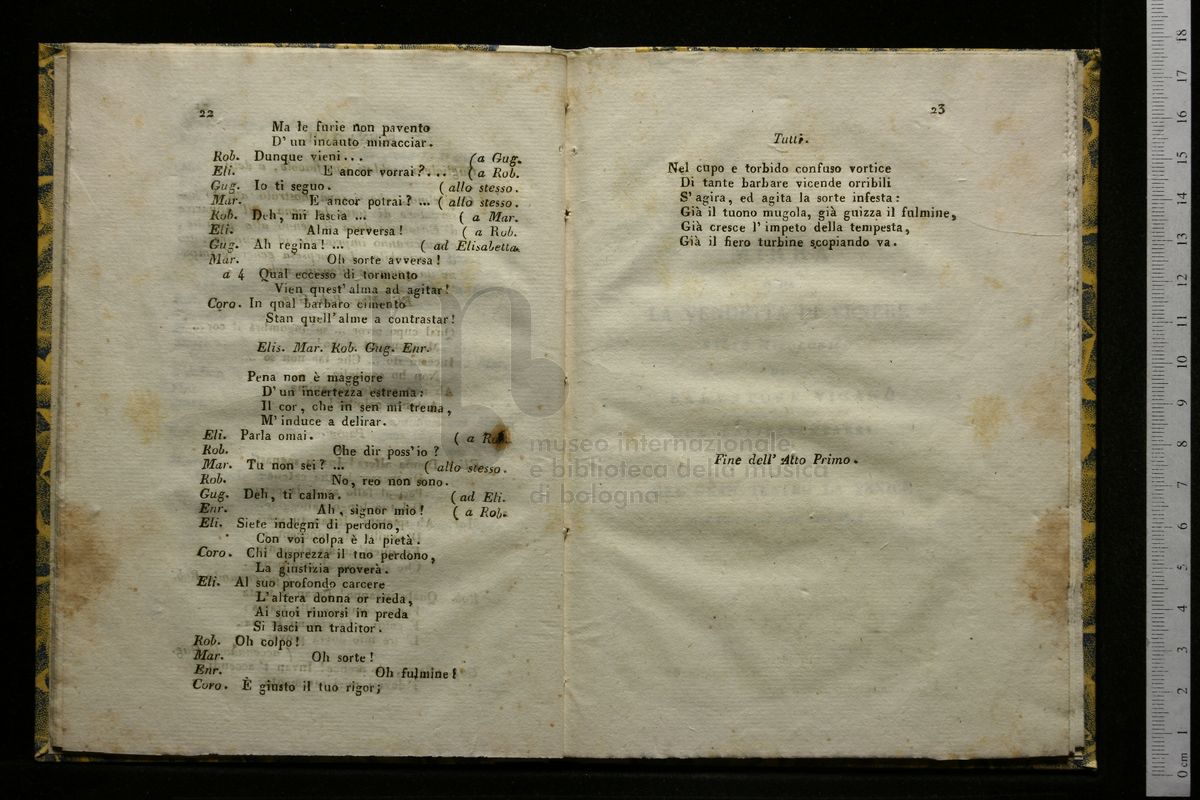 22
Ma le furie non pavento
D' un incauto minacciar.
Rob. Dunque vieni... (a Gug.
Eli. E ancor vorrai?... (a Rob.
Gug. Io ti seguo. (allo stesso.
Mar. E ancor potrai? ... (allo stesso.
Rob. Deh, mi lascia ... (a Mar.
Eli. Alma perversa! (a Rob.
Gug. Ah regina! ... (ad Elisabetta.
Mar. Oh sorte avversa!
a 4 Qual eccesso di tormento
Vien quest' alma ad agitar!
Coro. In qual barbaro cimento
Stan quell' alme a contrastar!
Elis. Mar. Rob. Gug. Enr.
Pena non è maggiore
D' un incertezza estrema:
Il cor, che in sen mi trema,
M' induce a delirar.
Eli. Parla omai. (a Rob.
Rob. Che dir poss' io?
Mar. Tu non sei? ... (allo stesso.
Rob. No, reo non sono.
Gug. Deh, ti calma. (ad Eli.
Enr. Ah, signor mio! (a Rob.
Eli. Siete indegni di perdono,
Con voi colpa è la pietà.
Coro. Chi disprezza il tuo perdono,
La giustizia proverà.
Eli. Al suo profondo carcere
L' altera donna or rieda,
Ai suoi rimorsi in preda
Si lasci un traditor.
Rob. Oh colpo!
Mar. Oh sorte!
Enr. Oh fulmine!
Coro. È giusto il tuo rigor;
23
Tutti.
Nel cupo e torbido confuso vortice
Di tante barbare vicende orribili
S' agira, ed agita la sorte infesta:
Già il tuono mugola, già guizza il fulmine,
Già cresce l' impeto della tempesta,
Già il fiero turbine scopiando va.
Fine dell' Atto Primo.
museo internazionale
e biblioteca della musica
di bologna
18
17
16
15
14
13
12
11
10
9
8
7
6
5
4
3
2
1
0 cm